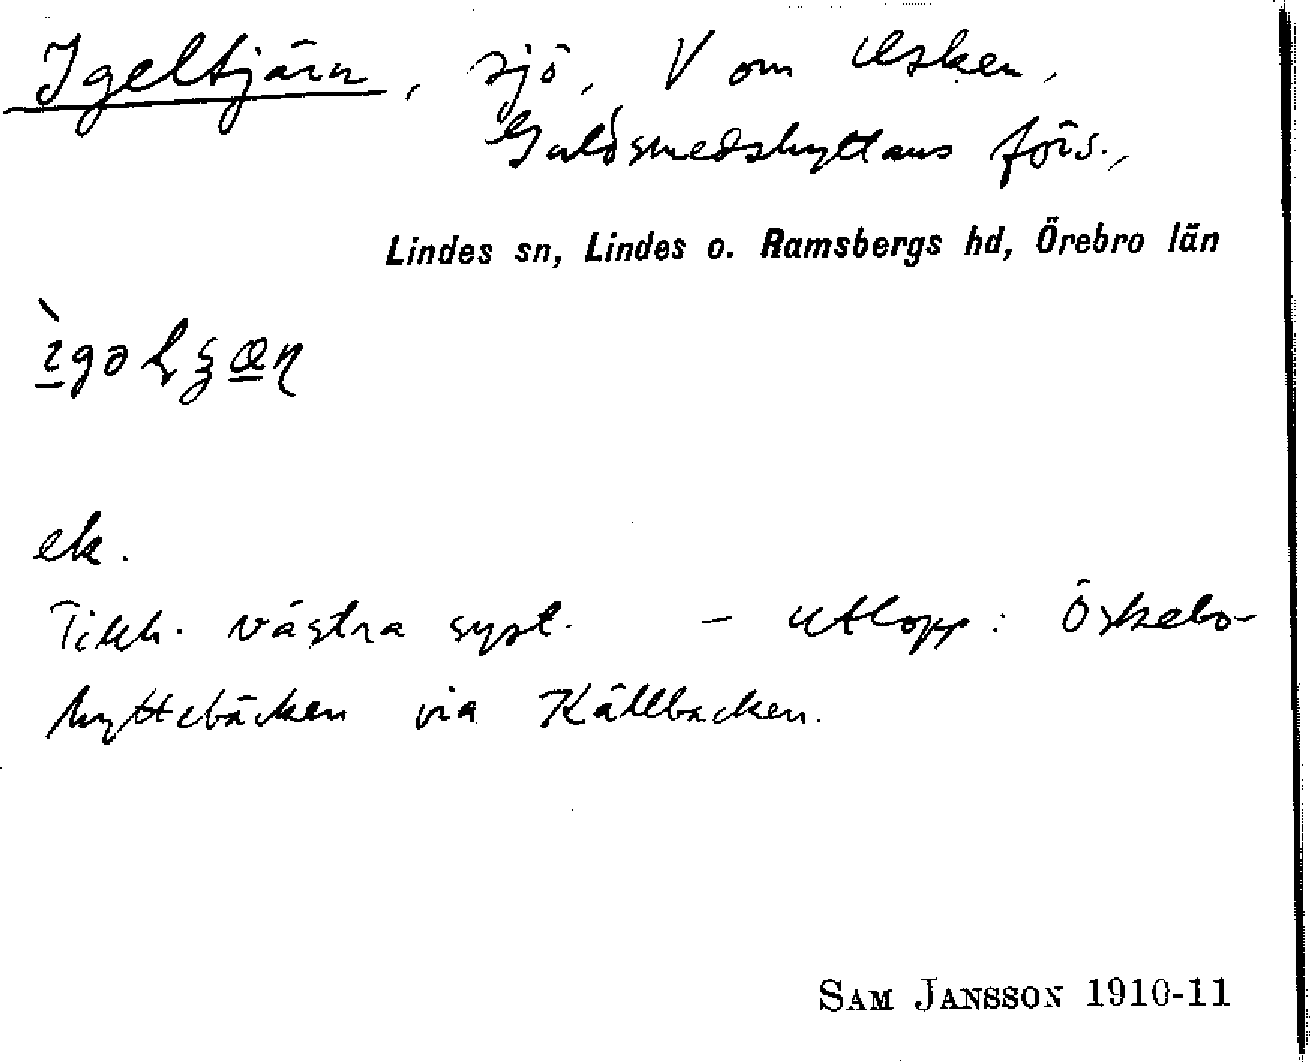 Igeltjärn, sjö, V om Usken,
Guldsmedshyttans förs.,
Lindes sn, Lindes o. Ramsbergs hd, Örebro län
ek.
Tillh. västra syst. – Utlopp: Öskebo-
hyttebäcken via Källbäcken.
SAM JANSSON 1910-11